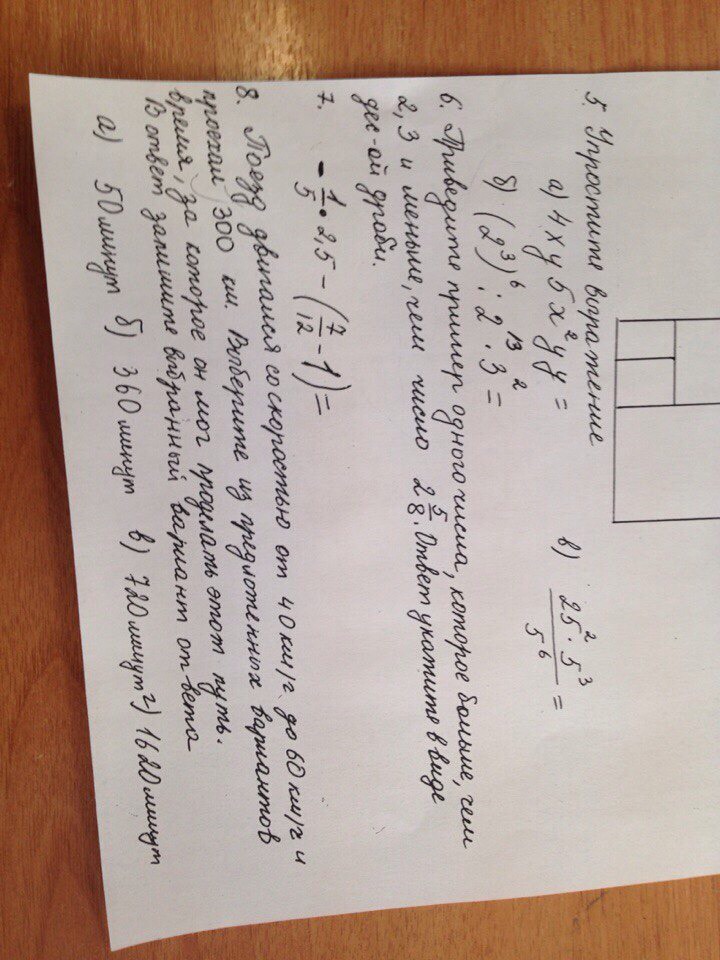 5. Упростите выражение
а) 4xy5x²yy = в) 25²·5³/5⁶ =
б) (2³)⁶ : 2¹³·3² =
6. Приведите пример одного числа, которое больше, чем
2,3 и меньше, чем число 2 5/8. Ответ укажите в виде
дес-ой дроби.
7. -1/5·2,5 - (7/12 - 1) =
8. Поезд двигался со скоростью от 40 км/г до 60 км/г и
проехал 300 км. Выберите из предложенных вариантов
время, за которое он мог проделать этот путь.
В ответ запишите выбранный вариант ответа
а) 50 минут б) 360 минут в) 720 минут г) 1620 минут